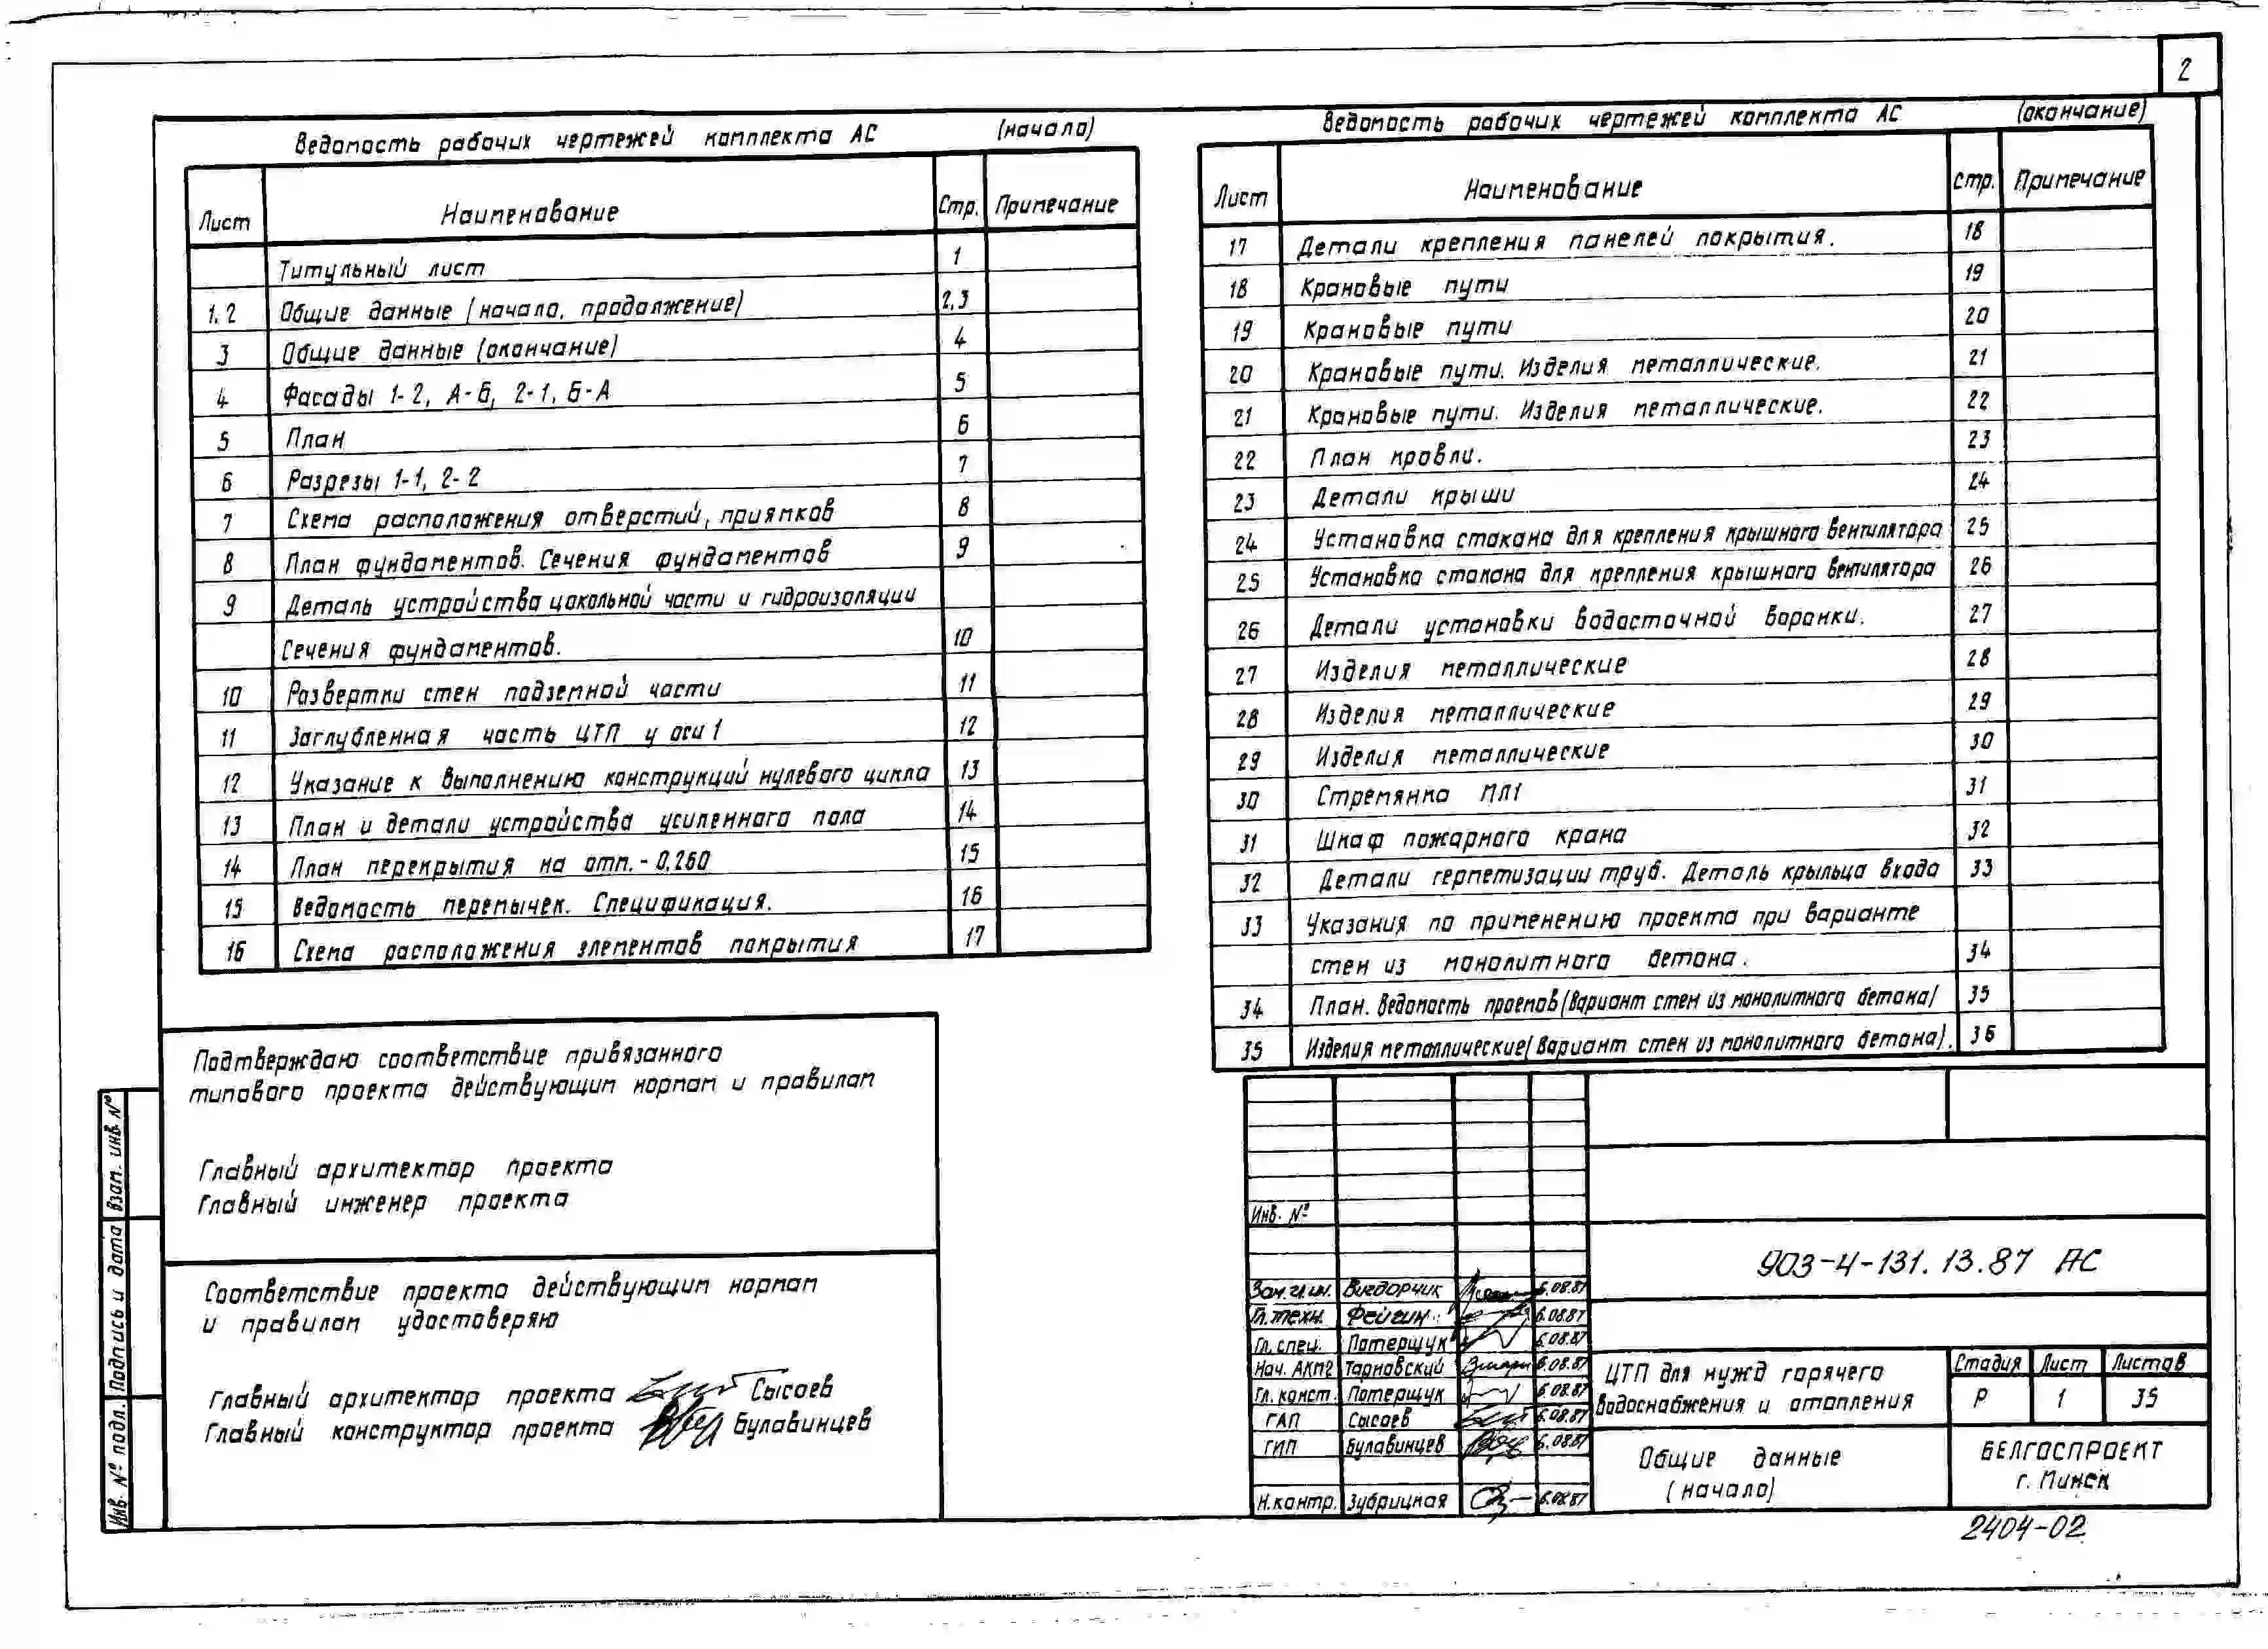 2
Ведомость рабочих чертежей комплекта АС (начало)
Лист Наименование Стр. Примечание
Титульный лист 1
1.2 Общие данные (начало, продолжение) 2,3
3 Общие данные (окончание) 4
4 Фасады 1-2, А-Б, 2-1, Б-А 5
5 План 6
6 Разрезы 1-1, 2-2 7
7 Схема расположения отверстий, приямков 8
8 План фундаментов. Сечения фундаментов 9
9 Деталь устройства цокольной части и гидроизоляции
Сечения фундаментов. 10
10 Развертки стен подземной части 11
11 Заглубленная часть ЦТП у оси 1 12
12 Указание к выполнению конструкций нулевого цикла 13
13 План и детали устройства усиленного пола 14
14 План перекрытия на отм. - 0,260 15
15 Ведомость перемычек. Спецификация. 16
16 Схема расположения элементов покрытия 17
Ведомость рабочих чертежей комплекта АС (окончание)
Лист Наименование Стр. Примечание
17 Детали крепления панелей покрытия. 18
18 Крановые пути 19
19 Крановые пути 20
20 Крановые пути. Изделия металлические. 21
21 Крановые пути. Изделия металлические. 22
22 План кровли. 23
23 Детали крыши 24
24 Установка стакана для крепления крышного вентилятора 25
25 Установка стакана для крепления крышного вентилятора 26
26 Детали установки водосточной воронки. 27
27 Изделия металлические 28
28 Изделия металлические 29
29 Изделия металлические 30
30 Стремянка МЛ1 31
31 Шкаф пожарного крана 32
32 Детали герметизации труб. Деталь крыльца входа 33
33 Указания по применению проекта при варианте
стен из монолитного бетона. 34
34 План. Ведомость проемов (Вариант стен из монолитного бетона) 35
35 Изделия металлические (Вариант стен из монолитного бетона). 36
Подтверждаю соответствие привязанного
типового проекта действующим нормам и правилам
Главный архитектор проекта
Главный инженер проекта
Соответствие проекта действующим нормам
и правилам удостоверяю
Главный архитектор проекта Сысоев
Главный конструктор проекта Булавинцев
Инв. № подл. Подпись и дата Взам. инв. №
Инв. №
903-4-131.13.87 АС
Зам. гл. ин. Вигдорчик 6.08.87
Гл. техн. Фейгин 6.08.87
Гл. спец. Потерщук 6.08.87
Нач. АКМ2 Тарновский 6.08.87
Гл. конст. Потерщук 6.08.87
ГАП Сысоев 6.08.87
ГИП Булавинцев 6.08.87
Н.контр. Зубрицкая 6.08.87
ЦТП для нужд горячего
водоснабжения и отопления
Стадия Лист Листов
Р 1 35
Общие данные
(начало)
БЕЛГОСПРОЕКТ
г. Минск
2404-02